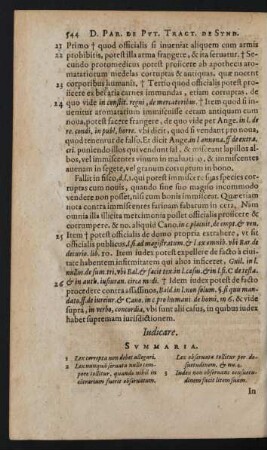 544 D. PAR. DE PVT. TRACT. DE SYND.
21 Primo † quod officialis si inueniat aliquem cum armis
22 prohibitis, potest illa arma frangere, & ita seruatur. † Se-
cundo protomedicus potest proiicere ab apothecis aro-
matariorum medelas corruptas & antiquas, quæ nocent
23 corporibus humanis. † Tertio quod officialis potest
proiicere es
24 quo vide in constit. regni, de mercatoribus. † Item quod si in-
ueniatur aromatarium immiscuisse ceram antiquam cum
noua, potest facere frangere, de quo vide per Ange. in l.
re. condi, in publ, horre. vbi dicit, quod si vendant pro noua,
quod tenentur de falso. Et dicit Ange. in l.
ponendo illos qui vendunt sal, & miscent lapillos al-
bos, vel immiscentes vinum in maluati
autem in segete, vel granum corruptum in bono.
Fallit in fisco,
ptas cum nouis, quando sine suo magno incommodo
vendere non posset, nisi cum bonis immisceat. Quam tamen
nota contra immiscentes farinam fabarum in cera. Nam
omnia illa illicita mercimonia posset officialis proiicere &
corrumpere, & no. aliquid Cano. in c. placuit, de empt. & ven.
25 Item † potest officialis de domo propria extrahere, vt sit
officialis publicus.
decurio. lib. 10. Item iudex potest expellere de facto à ciui-
tate habentem institutum qui alios inficeret, Guil. in l.
nullus
& in auth. iusiuran. circa medi. † Idem iudex potest de facto
26 procedere contra assassinos, Bald. in l.
dat. ff. de iureiur. & Cano. in c. pro humani de homi, in 6. & vide
supra, in verbo, concordia, vbi sunt alii casus, in quibus iudex
habet supremam iurisdictionem.
Iudicare.
SVMMARIA.
1 Lex correpta non debet allegari.
2 Lex nunquam seruata nullo tem-
pore tollitur, quando nihil in
contrarium fuerit obseruatum.
Lex obseruata tollitur per de-
suetudinem, & nu. 4.
3 Iudex non obseruans consuetu-
dinem facit litem suam.
In